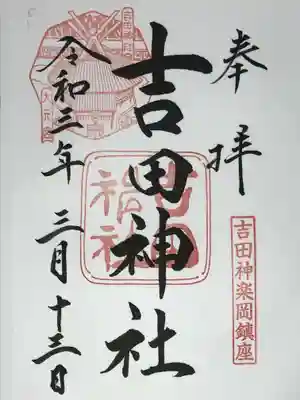 奉拝
吉田神楽岡鎮座
吉田神社
吉田神社
令和三年三月十三日